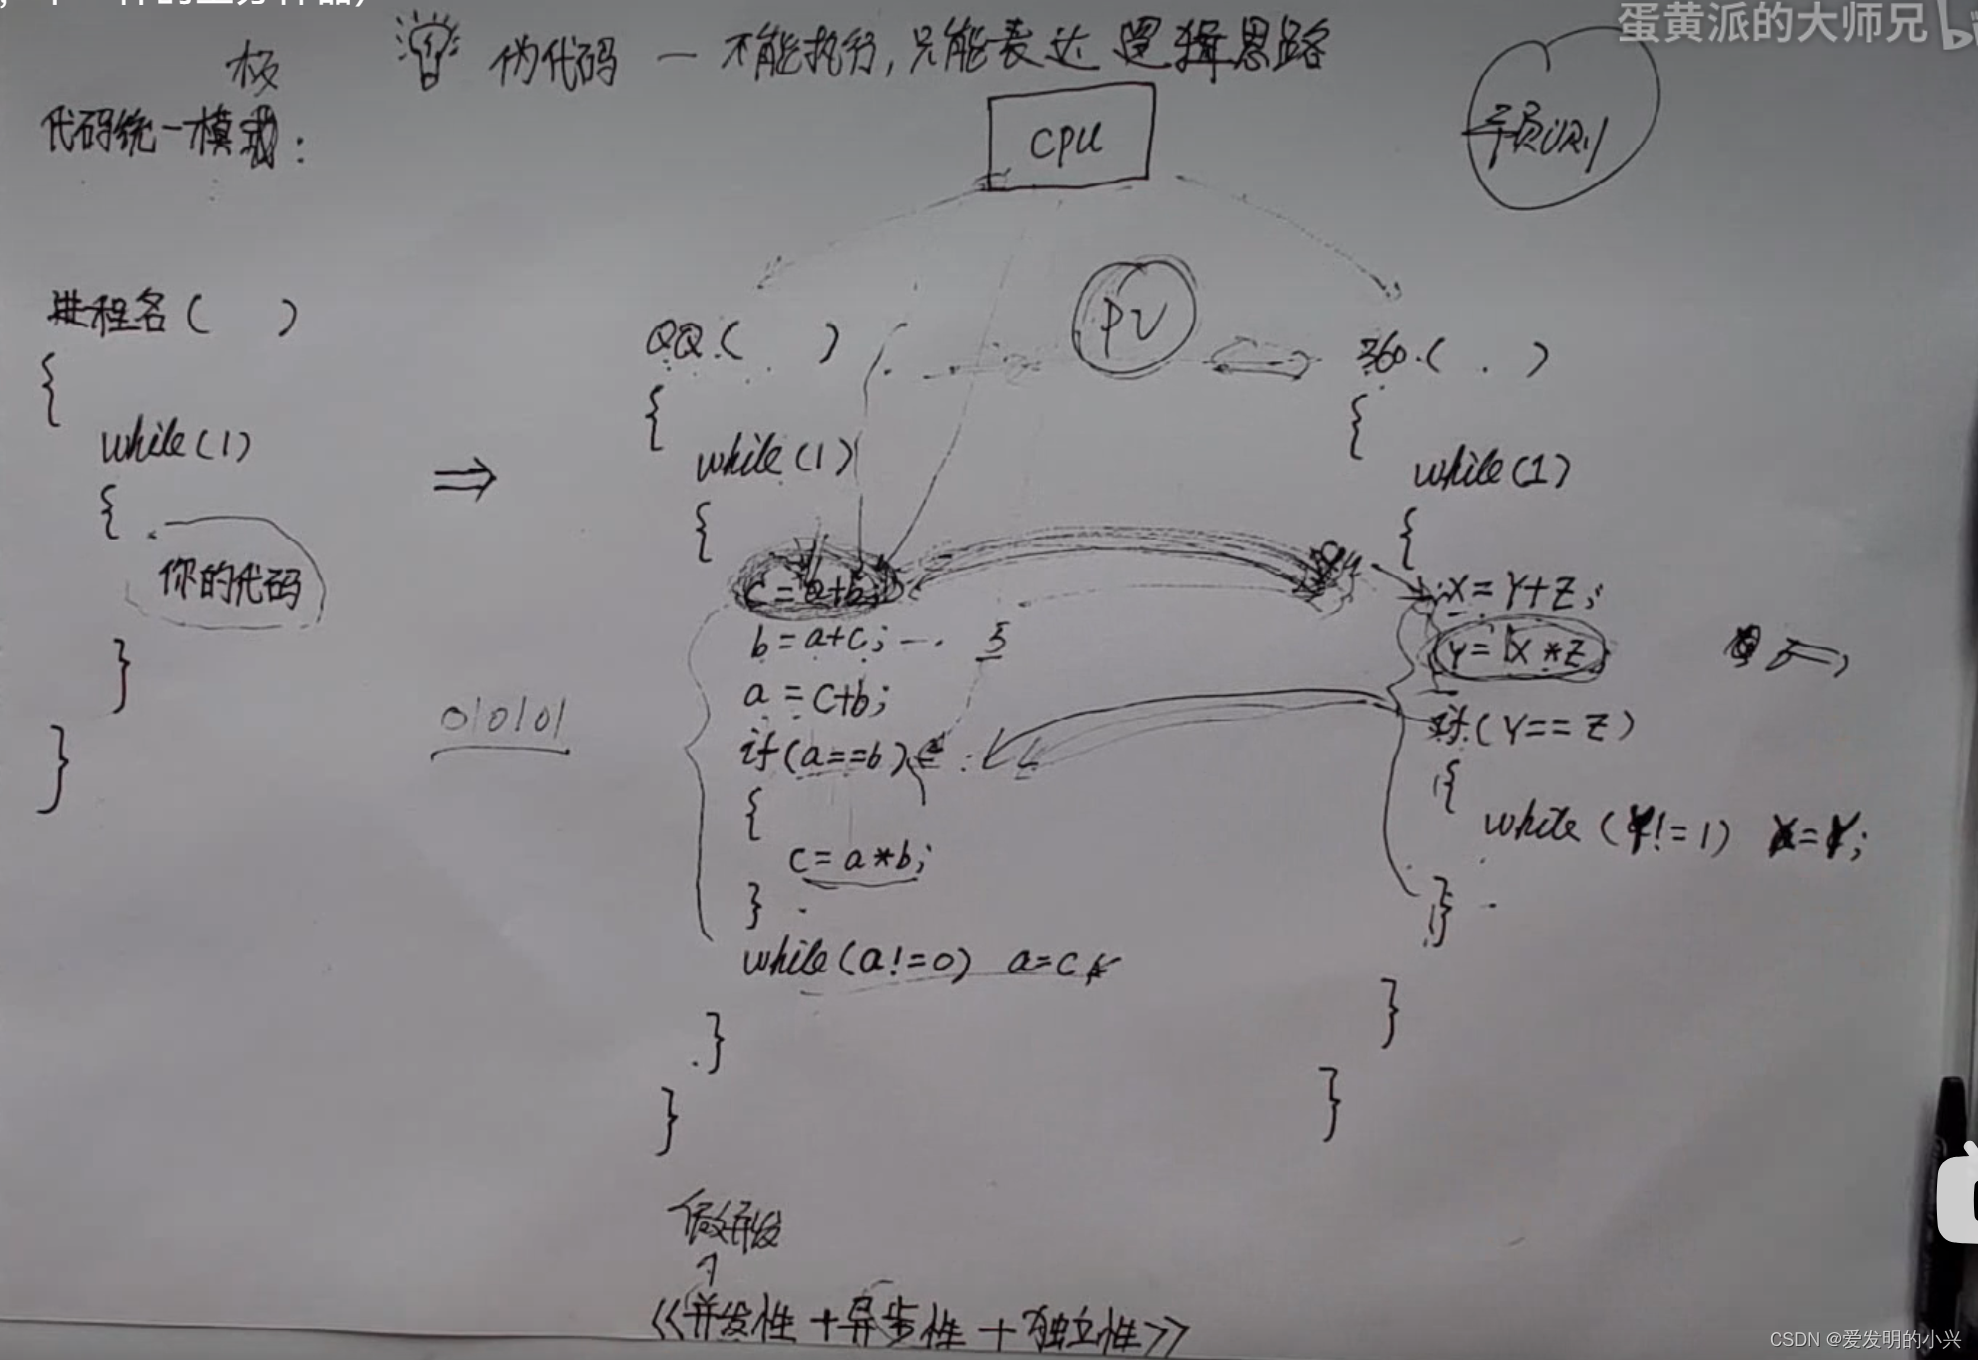 蛋黄派的大师兄
板
伪代码 — 不能执行,只能表达逻辑思路
代码统一模式:
CPU
进程名( )
{
while(1)
{
你的代码
}
}
⇒
010101
PV
QQ( )
{
while(1)
{
c=a+b;
b=a+c; 5
a=c+b;
if(a==b)
{
c=a*b;
}
while(a!=0) a=c
}
}
360( )
{
while(1)
{
X=Y+Z;
Y=X*Z
if(Y==Z)
{
while(Y!=1) X=Y;
}
}
}
做开发
《并发性+异步性+独立性》
CSDN @爱发明的小兴